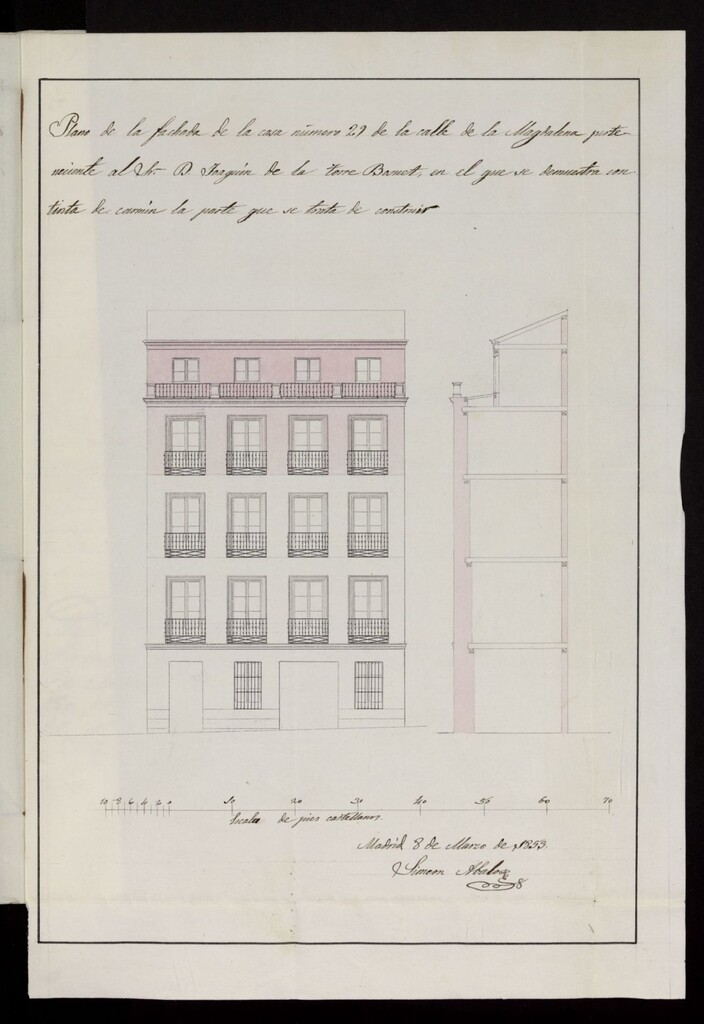 Plano de la fachada de la casa número 29 de la calle de la Magdalena perte-
neciente al Sr. D. Joaquin de la Torre Bamet, en el que se demuestra con
tinta de carmin la parte que se trata de construir
10 8 6 4 2 0 10 20 30 40 50 60 70
Escala de pies castellanos.
Madrid 8 de Marzo de 1853.
Simeon Abalos